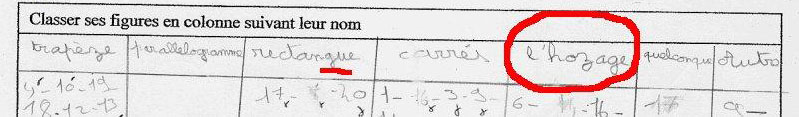 Classer ses figures en colonne suivant leur nom
trapèze parallelogramme rectangue carrés l'hozage quelconque Autre
10-19 17- -20 1- 16-3-9- 6- -16- 17 9-
18.12.13